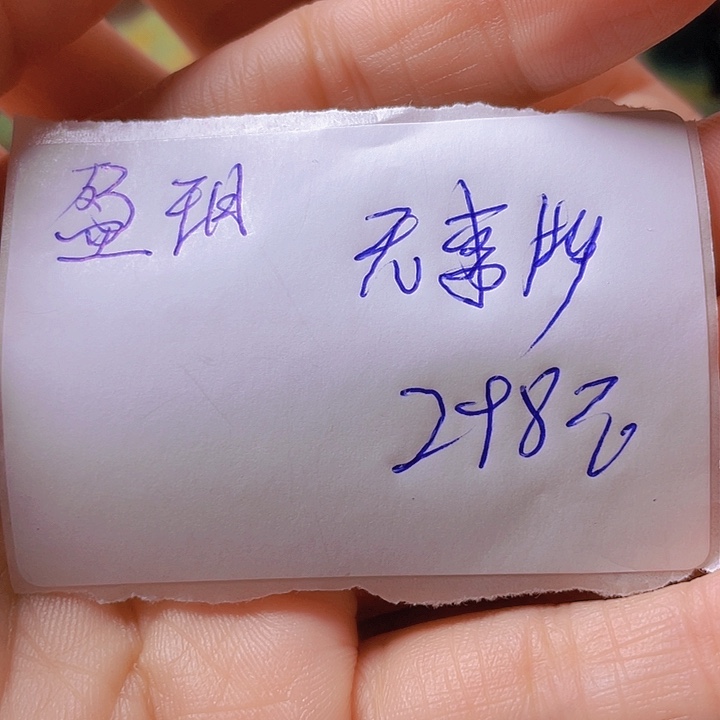 盈玥
无事牌
298元